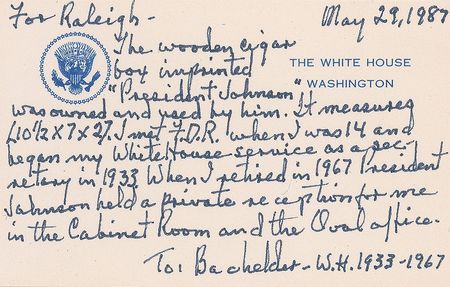 For Raleigh - May 29, 1987
The wooden cigar
box imprinted
THE WHITE HOUSE
"President Johnson"
WASHINGTON
was owned and used by him. It measures
(10½ X 7 X 2). I met F.D.R. when I was 14 and
began my White House service as a sec-
retary in 1933. When I retired in 1967 President
Johnson held a private reception for me
in the Cabinet Room and the Oval office.
Toi Bachelder - W.H. 1933-1967